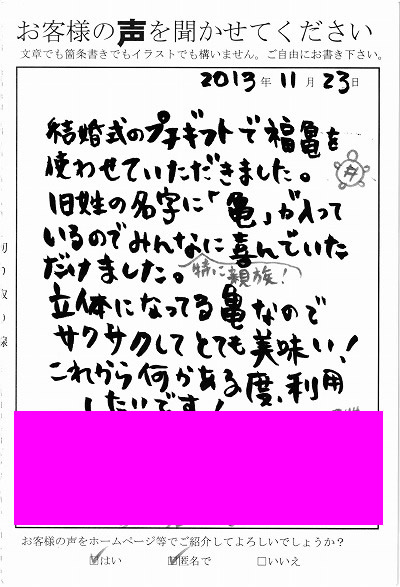 お客様の声を聞かせてください
文章でも箇条書きでもイラストでも構いません。ご自由にお書き下さい。
2013年11月23日
結婚式のプチギフトで福亀を
使わせていただきました。
旧姓の名字に「亀」が入って
いるのでみんなに喜んでいた
だけました。
特に親族!
立体になってる亀なので
サクサクしてとても美味い!
これから何かある度、利用
したいです!
お客様の声をホームページ等でご紹介してよろしいでしょうか?
☑はい ☑匿名で □いいえ